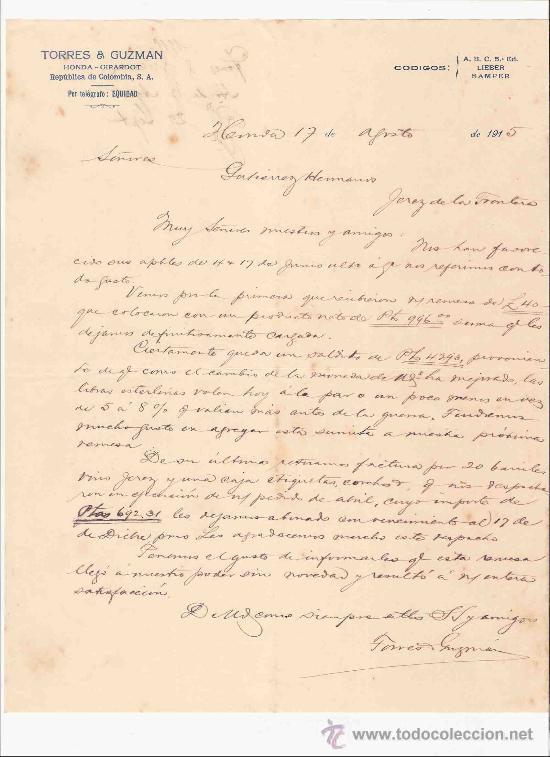 TORRES & GUZMAN
HONDA - GIRARDOT
República de Colombia, S. A.
Por telégrafo: EQUIDAD
CODIGOS:
A. B. C. 5ª Ed.
LIEBER
SAMPER
Honda 17 de Agosto de 1915
Señores
Gutierrez Hermanos
Jerez de la Frontera
Muy Señores nuestros y amigos:
Nos han favore
cido sus apbles de 4 & 17 de Junio ulto á q nos referimos con to
do gusto.
Vemos por la primera que recibieron n/ remesa de £ 40-
que colocaron con un producto neto de Pts 996.00 suma q les
dejamos definitivamente cargada.
Ciertamente queda un saldito de Pts 4293, provenien
te de q como el cambio de la moneda de Uds ha mejorado, las
libras esterlinas valen hoy á la par o un poco menos en vez
de 5 á 8 % q valian más antes de la guerra, Tendremos
mucho gusto en agregar esta sumita a nuestra próxima
remesa.
De su última retiramos factura por 20 barriles
vino Jerez y una caja etiquetas, corchos, q nos despacha
ron en ejecución de n/ pedido de abril, cuyo importe de
Ptas 692,31 les dejamos abonado con vencimiento al 17 de
de Dicbre pmo Les agradecemos mucho este despacho
Tenemos el gusto de informarles q esta remesa
llegó a nuestro poder sin novedad y resultó á n/ entera
satisfacción.
De Uds como siempre attos SS y amigos
Torres & Guzmán
www.todocoleccion.net